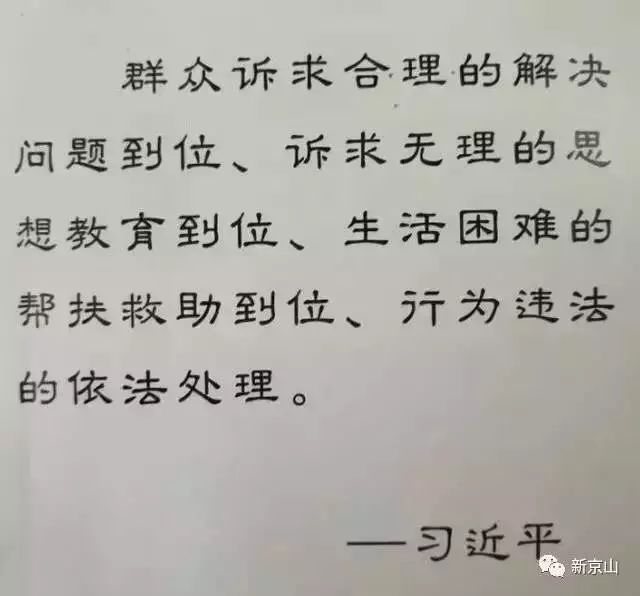 群众诉求合理的解决
问题到位、诉求无理的思
想教育到位、生活困难的
帮扶救助到位、行为违法
的依法处理。
—习近平
新京山